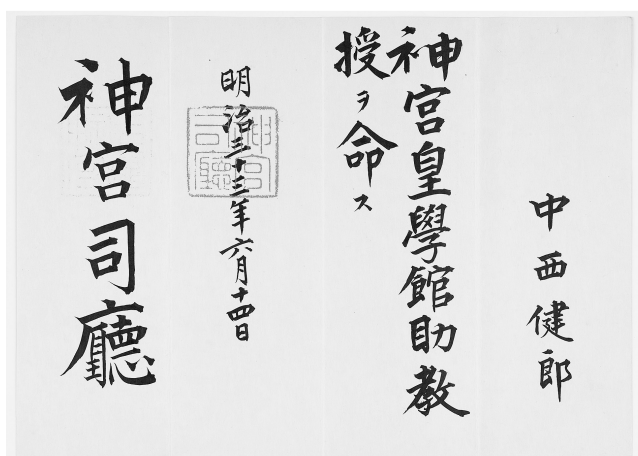 中西健郎
神宮皇學館助教
授ヲ命ス
明治三十三年六月十四日
神宮司廳
神宮司廳